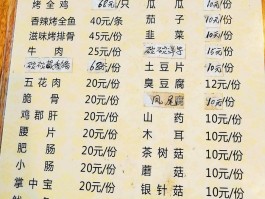 烤全鸡 68元/只
香辣烤全鱼 40元/条
滋味烤排骨 45元/份
牛肉 25元/份
68元/份
五花肉 20元/份
脆骨 20元/份
鸡郡肝 20元/份
腰片 20元/份
肥肠 20元/份
小肠 20元/份
掌中宝 20元/份
瓜瓜 10元/份
茄子 10元/份
韭菜 10元/份
15元/份
土豆片 10元/份
臭豆腐 12元/份
10元/份
山药 10元/份
木耳 10元/份
茶树菇 10元/份
蘑菇 10元/份
银针菇 10元/份